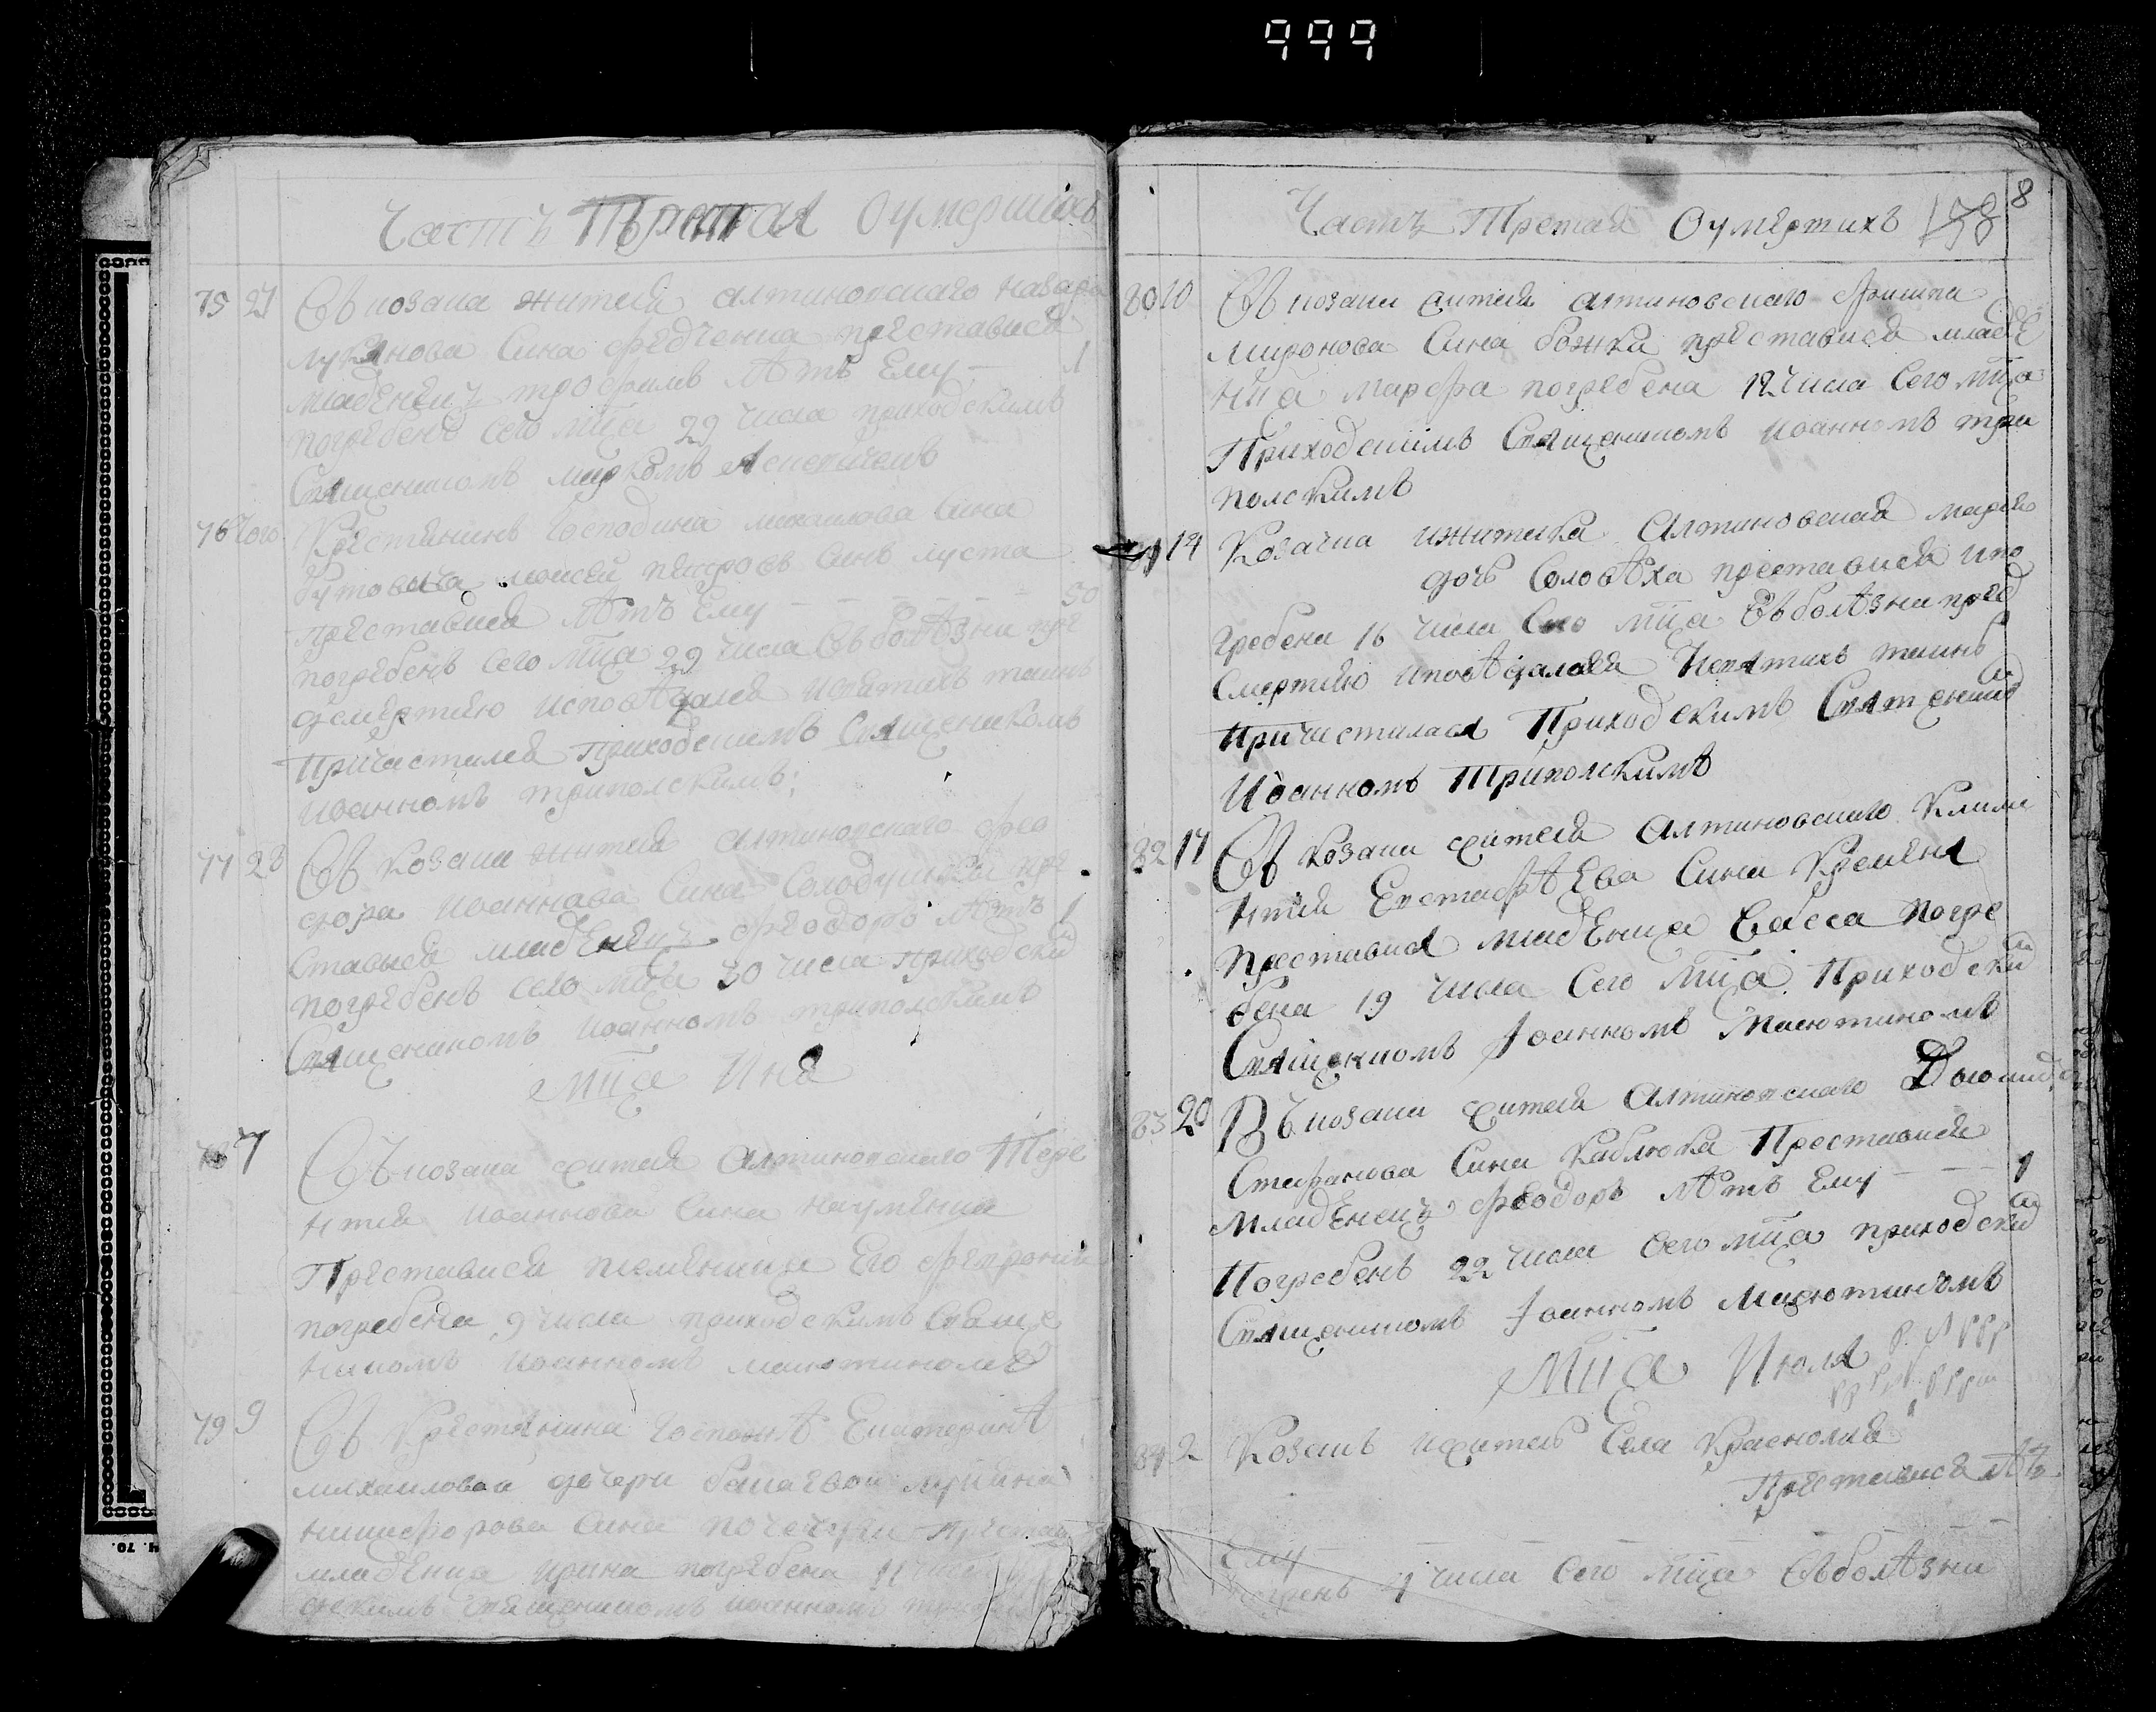 999
Часть Третая Оумершихъ
75 27 Въ козака жителя алтиновского Назара
лукянова Сина федченка преставися
младенецъ трофимъ лѣтъ Ему — 1
погребенъ сего мца 29 числа приходскимъ
Священикомъ
76 Того Крестянинъ Господина михаилова Сина
Бутовича моисей Синъ луста
преставися лѣтъ Ему — 50
погребенъ сего мца 29 числа Въ болѣзни пре
дсмертию исповѣдался истихъ таинъ
Причастился Приходскимъ Священикомъ
Иоанномъ триполскимъ;
77 28 Въ козака жителя алтиновского фео
дора Иоаннова Сина Солодушки пре
ставися младенецъ феодоръ лѣтъ 1
погребенъ сего мца 30 числа приходски
Священикомъ Иоанномъ триполскимъ
Мца Иня
78 7 Въ козака жителя Алтиновского Тере
нтия Иоаннова Сина науменка
Преставися племеница Его феврония
погребена 9 числа приходскимъ Свяще
никомъ Иоанномъ маютиномъ
79 9 Въ Крестянина Госпожѣ Екатеринѣ
михаиловой дочери
никифорова Сина
младеница ирина погребена 11
дскимъ священикомъ иоанномъ
Часть Третая Оумертихъ 158 8
80 10 Въ козака жителя алтиновского
миронова Сина божка преставися младе
ница марфа погребена 12 числа Сего мца
Приходскимъ Священикомъ Иоанномъ три
полскимъ
81 14 Козачка ижителка Алтиновская
дочь Соловѣха преставися ипо
гребена 16 числа Сего мца Въ болѣзни пред
Смертию исповѣдалася Исвятихъ таинъ
Причасталася Приходскимъ Святщеник
Иоанномъ Триполскимъ
82 17 Въ козака жителя Алтиновского Климе
нтия Евстафѣева Сина Кременя
Преставися младеница Васса погре
бена 19 числа Сего Мца Приходски
Священикомъ Иоанномъ Маютиномъ
83 20 Въ козака жителя Алтиновского
Стефанова Сина Каблюка Преставися
Младенецъ феодоръ лѣтъ Ему — 1
Погребенъ 22 числа Сего мца приходски
Священикомъ Иоанномъ Маютиномъ
Мца Июля
84 2 Козакъ ижитель Села Красноля
Преставися лѣтъ
Ему
4 числа Сего Мца Въ болѣзни